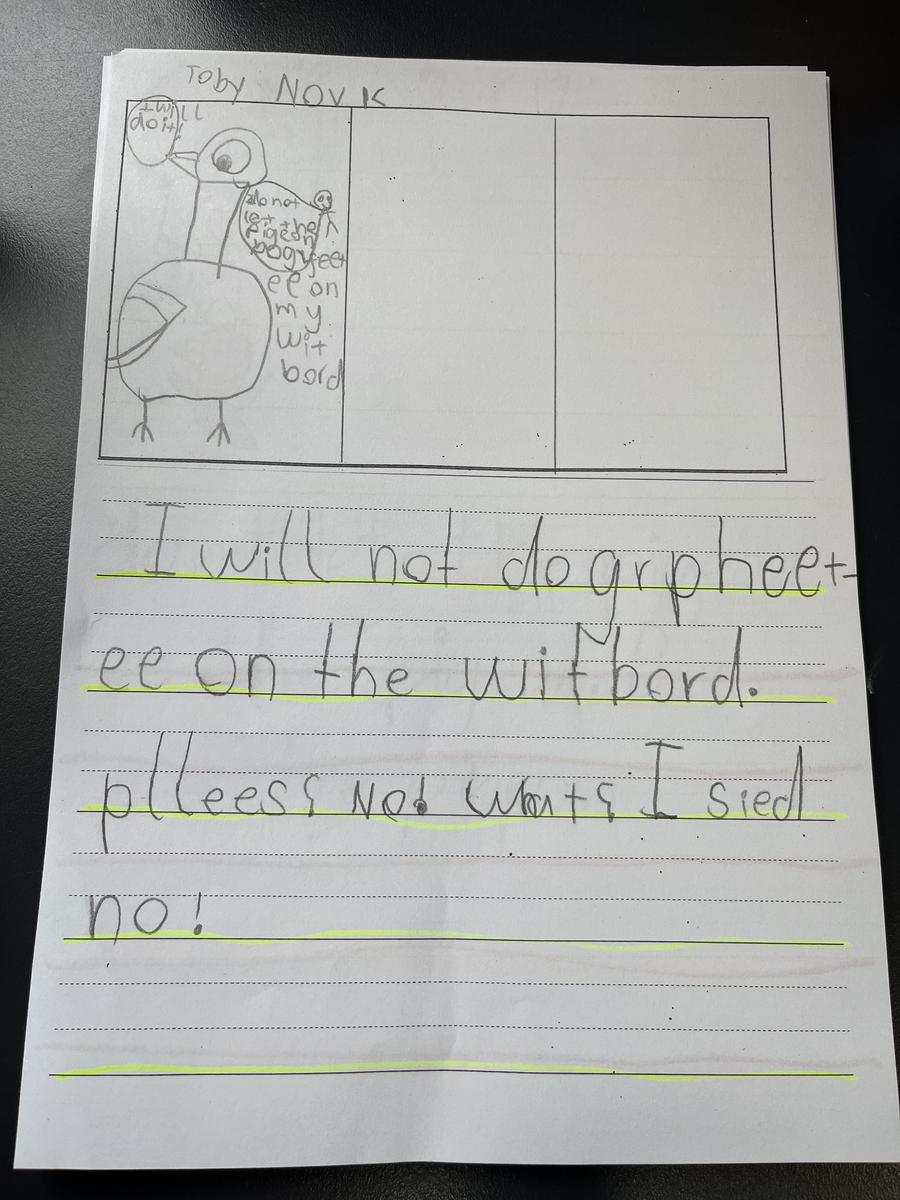 Toby Novk
I will
do it!
do not
let the
pigeon
dogrfeet
ee on
my
wit
bord
I will not dogrpheet
ee on the witbord.
plleess Not wonts I sied
no!